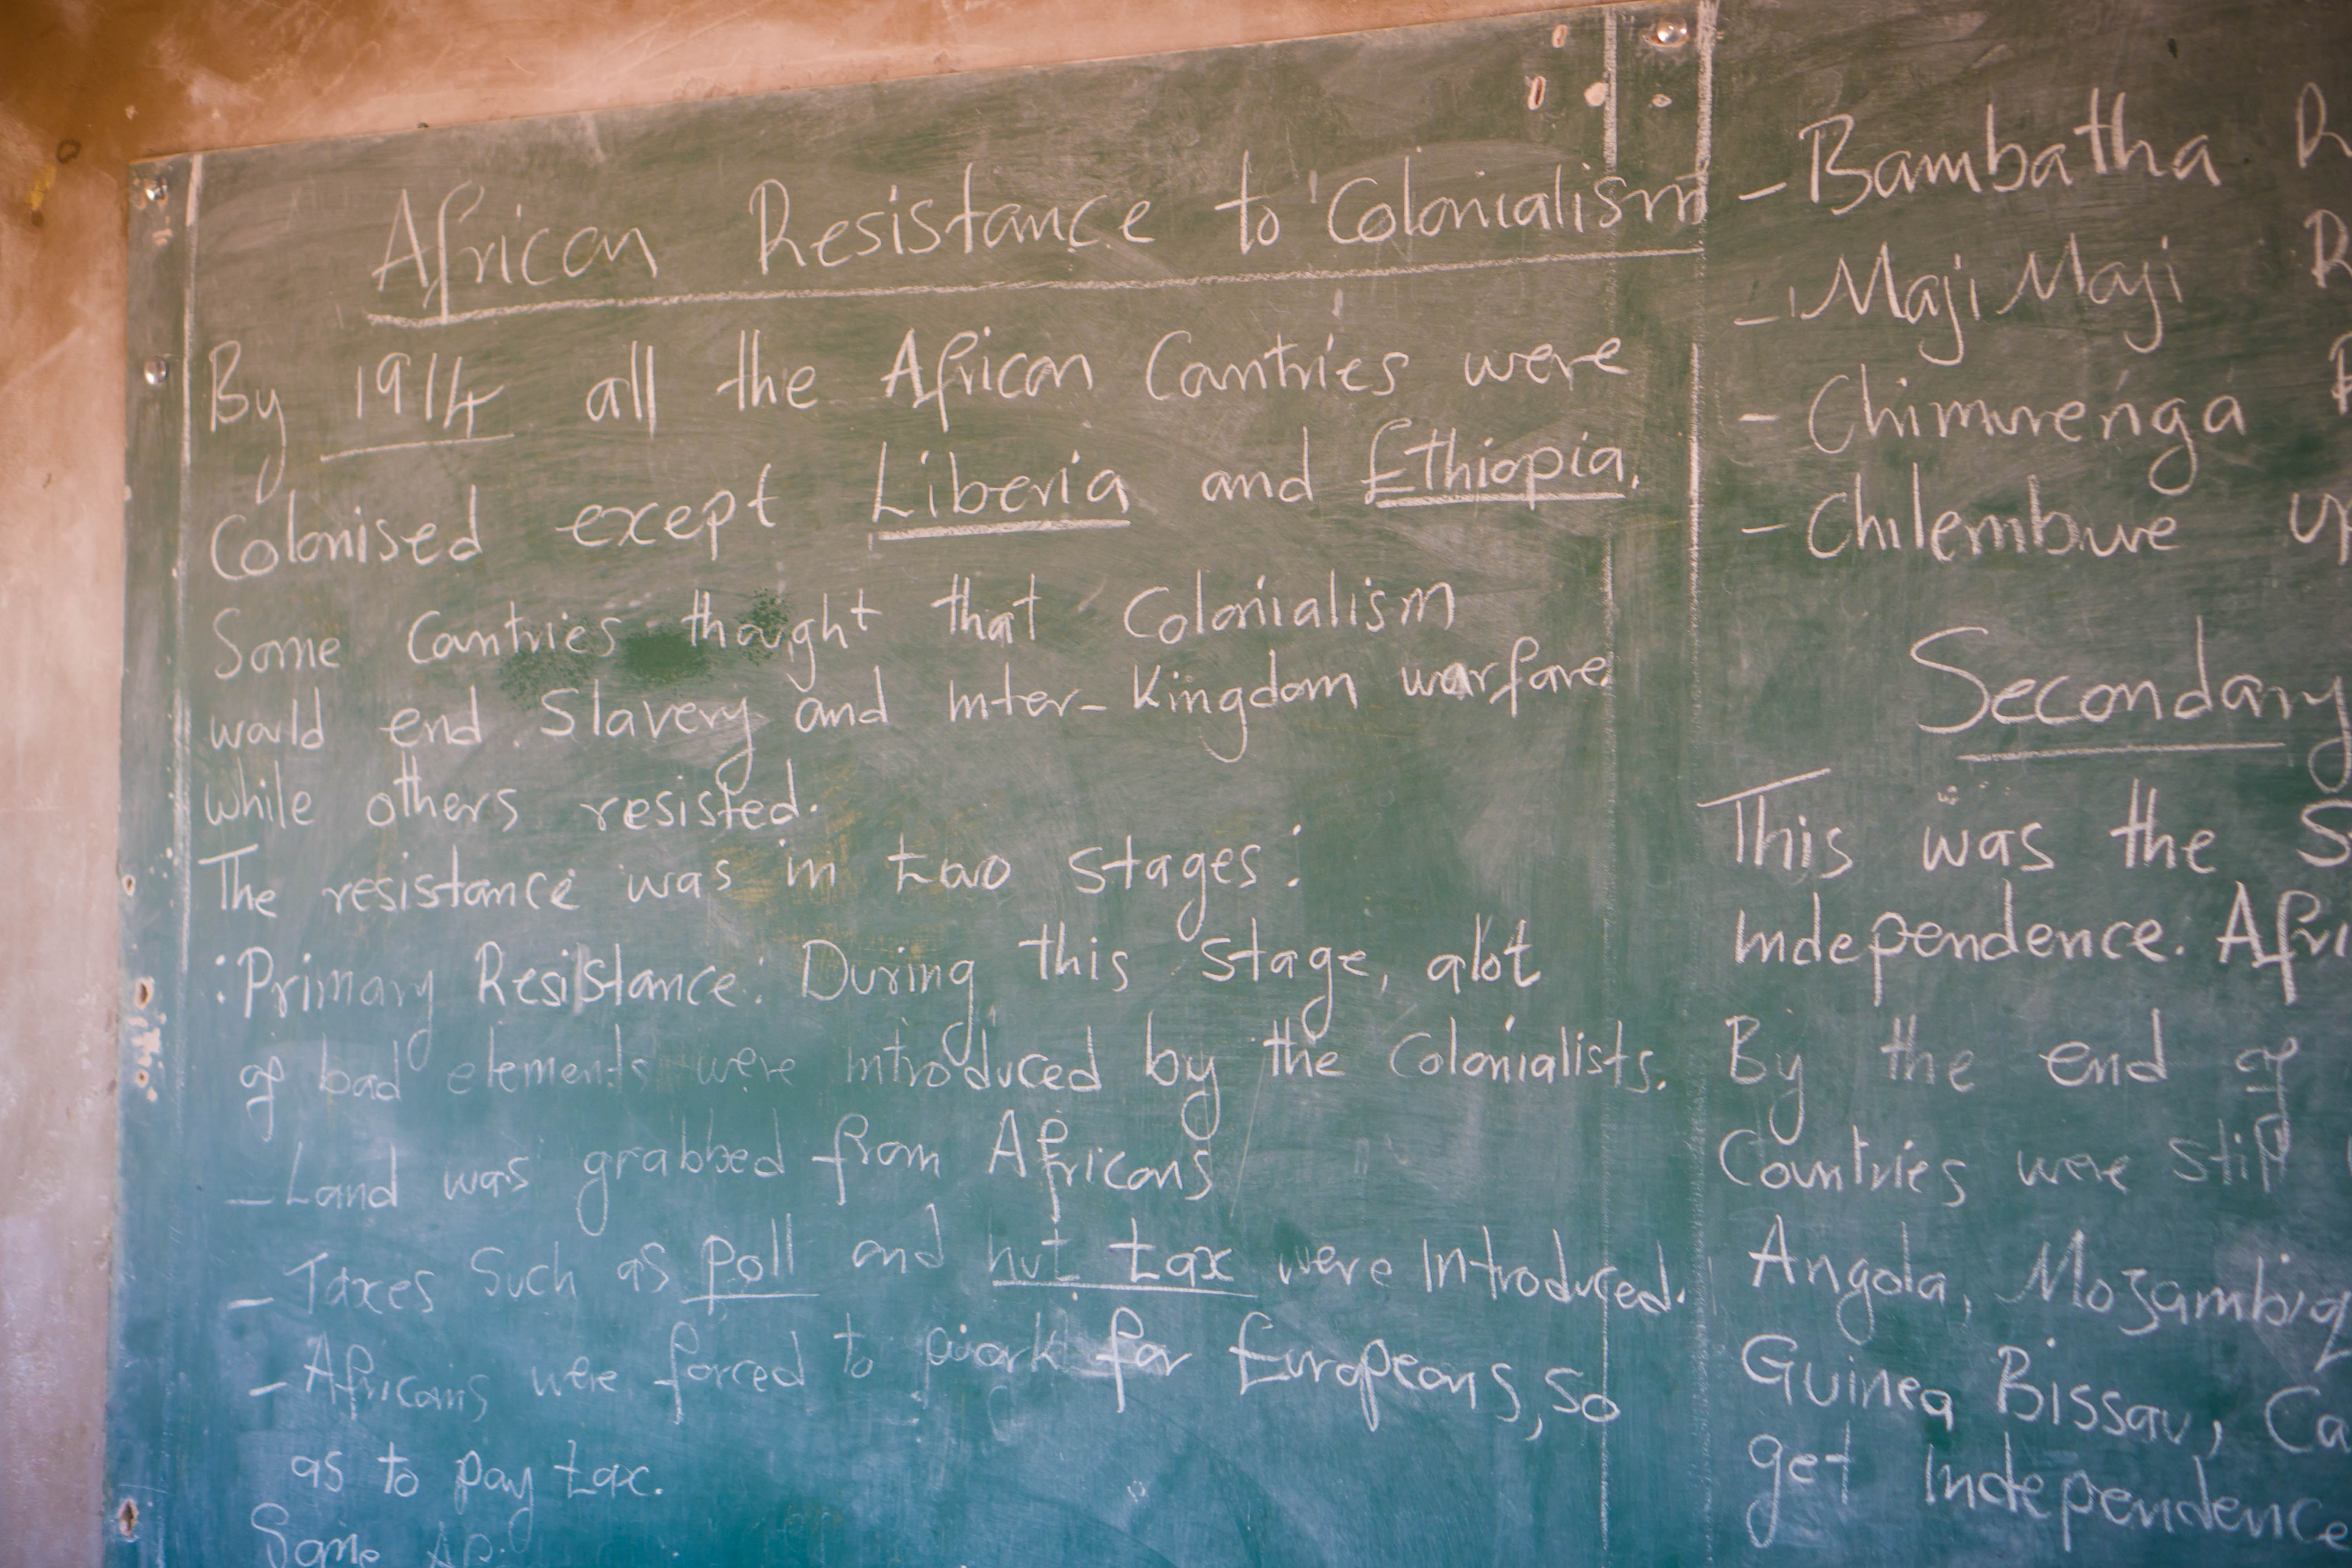 African Resistance to Colonialism
By 1914 all the African Countries were
Colonised except Liberia and Ethiopia.
Some Countries thought that Colonialism
would end Slavery and Inter-Kingdom warfare
while others resisted.
The resistance was in two stages:
:Primary Resistance: During this stage, alot
of bad elements were introduced by the Colonialists.
- Land was grabbed from Africans
- Taxes Such as poll and hut tax were Introduced.
- Africans were forced to work for Europeans, So
as to pay tax.
Some
- Bambatha R
- Maji Maji R
- Chimurenga R
- Chilembwe
Secondary
This was the S
Independence. Afri
By the end of
Countries were still
Angola, Mozambiq
Guinea Bissau, Ca
get Independence